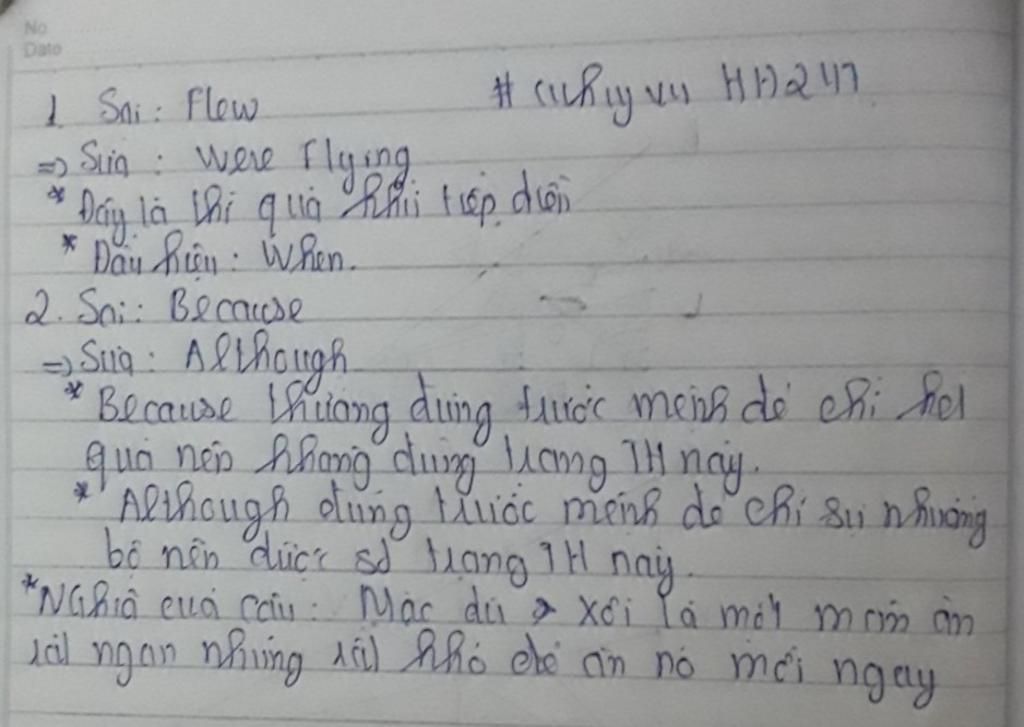 No
Date
1. Sai: Flew # HH247
=> Sửa: Were flying
* Đây là thì quá khứ tiếp diễn
* Dấu hiệu: When.
2. Sai: Because
=> Sửa: Although
* Because thường dùng trước mệnh đề chỉ kết
quả nên không dùng trong TH này.
* Although dùng trước mệnh đề chỉ sự nhượng
bộ nên được sd trong TH này.
* Nghĩa của câu: Mặc dù xôi là một món ăn
rất ngon nhưng rất khó để ăn nó mỗi ngày